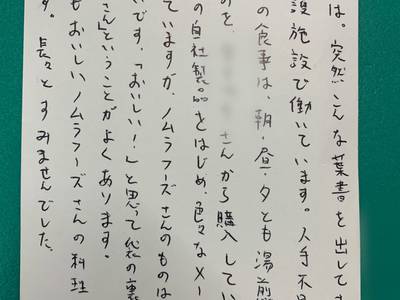 は。突然こんな葉書を出してす
護施設で働いています。人手不足
の食事は、朝・昼・夕とも湯煎
のを、さんから購入してい
の自社製品をはじめ、色々なメー
ていますが、ノムラフーズさんのものは
いです。「おいしい！」と思って袋の裏
さん」ということがよくあります。
もおいしいノムラフーズさんの料理
す。長々とすみませんでした。